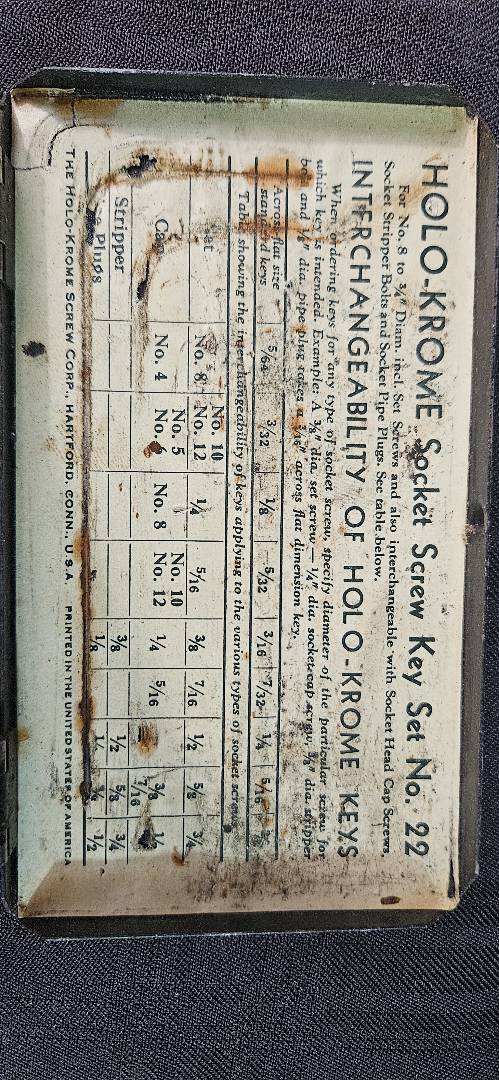 HOLO-KROME Socket Screw Key Set No. 22
For No. 8 to 3/4" Diam. incl. Set Screws and also interchangeable with Socket Head Cap Screws,
Socket Stripper Bolts and Socket Pipe Plugs. See table below.
INTERCHANGEABILITY OF HOLO-KROME KEYS
When ordering keys for any type of socket screw, specify diameter of the particular screw for
which key is intended. Example: A 3/8" dia. set screw — 1/4" dia. socket cap screw, 3/8" dia. stripper
and 1/8" dia. pipe plug takes a 3/16" across flat dimension key.
Table showing the interchangeability of keys applying to the various types of socket screws
Across flat size
standard keys 5/64 3/32 1/8 5/32 3/16 7/32 1/4 5/16
No. 10
No. 8 No. 12 1/4 5/16 3/8 7/16 1/2 5/8 3/4
No. 5 No. 10
Cap No. 4 No. 6 No. 8 No. 12 1/4 5/16 3/8 1/2
7/16
Stripper 3/8 1/2 5/8 3/4
Plugs 1/8 1/4 1/2
THE HOLO-KROME SCREW CORP., HARTFORD, CONN., U.S.A. PRINTED IN THE UNITED STATES OF AMERICA